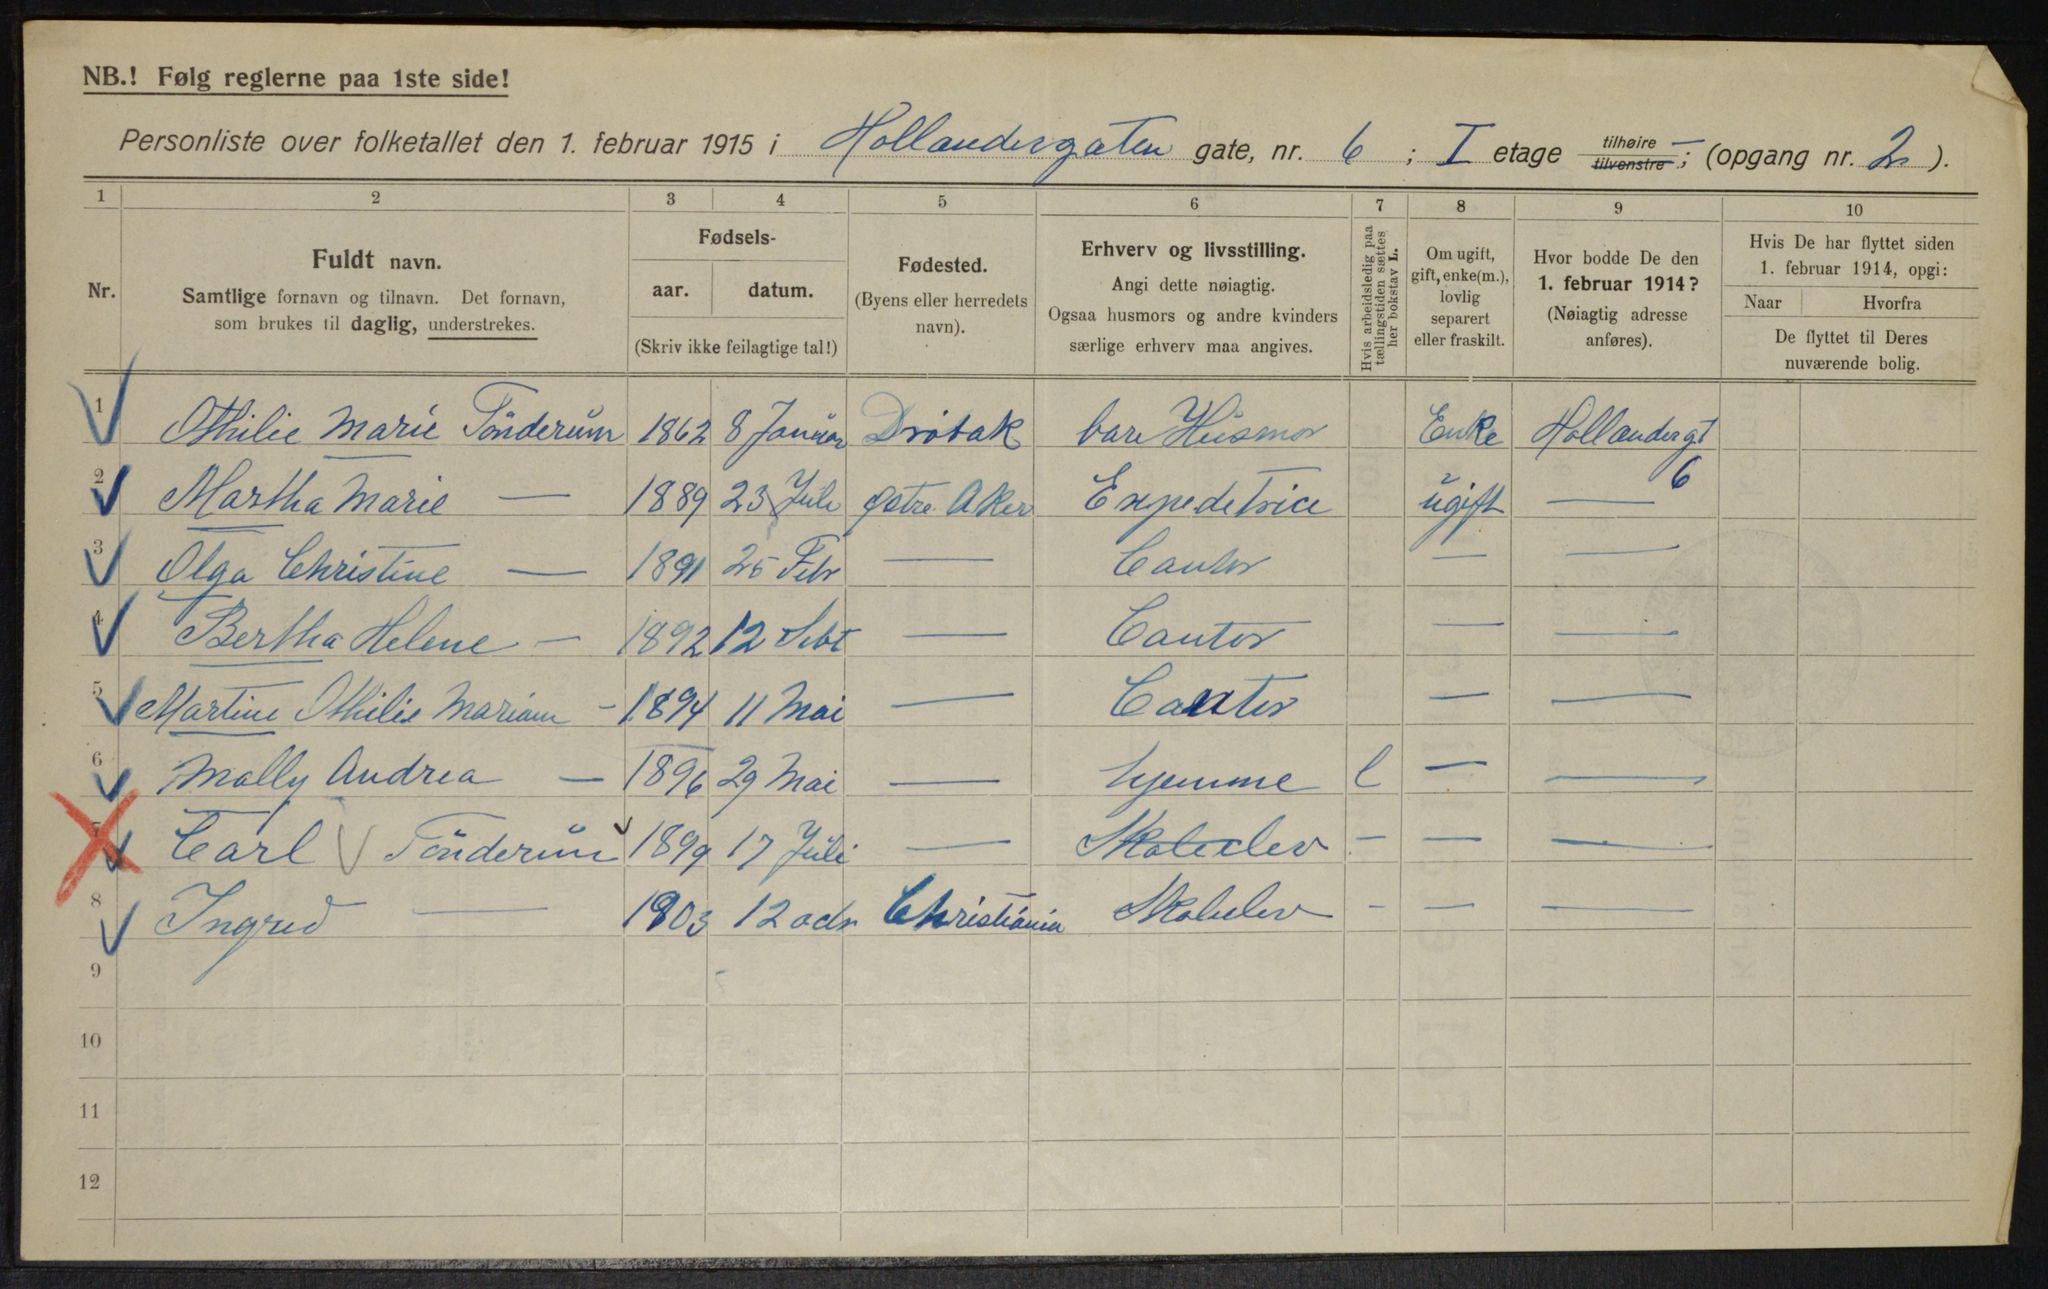 NB.! Følg reglerne paa 1ste side!
Personliste over folketallet den 1. februar 1915 i Hollandergaten gate, nr. 6 ; I etage tilhøire — tilvenstre ; (opgang nr. 2 ).
1 2 3 4 5 6 7 8 9 10
Nr.
Fuldt navn.
Samtlige fornavn og tilnavn. Det fornavn,
som brukes til daglig, understrekes.
Fødsels-
aar. datum.
(Skriv ikke feilagtige tal!)
Fødested.
(Byens eller herredets
navn).
Erhverv og livsstilling.
Angi dette nøiagtig.
Ogsaa husmors og andre kvinders
særlige erhverv maa angives.
Hvis arbeidsledig paa
tællingstiden sættes
her bokstav L.
Om ugift,
gift, enke(m.),
lovlig
separert
eller fraskilt.
Hvor bodde De den
1. februar 1914?
(Nøiagtig adresse
anføres).
Hvis De har flyttet siden
1. februar 1914, opgi:
Naar Hvorfra
De flyttet til Deres
nuværende bolig.
1 Othilie Marie Tönderum 1862 8 Januar Dröbak bare Husmor Enke Hollandergt 6
2 Martha Marie — 1889 23 Juli Østre Aker Expeditrice ugift —
3 Olga Christine — 1891 25 Febr — Contor — —
4 Bertha Helene — 1892 12 Sebt — Contor — —
5 Martine Othilie Mariam — 1894 11 Mai — Contor — —
6 Mally Andrea — 1896 29 Mai — hjemme l — —
7 Carl Tönderum 1899 17 Juli — Skoleelev — — —
8 Ingrid — 1903 12 Christiania Skoleelev — — —
9
10
11
12